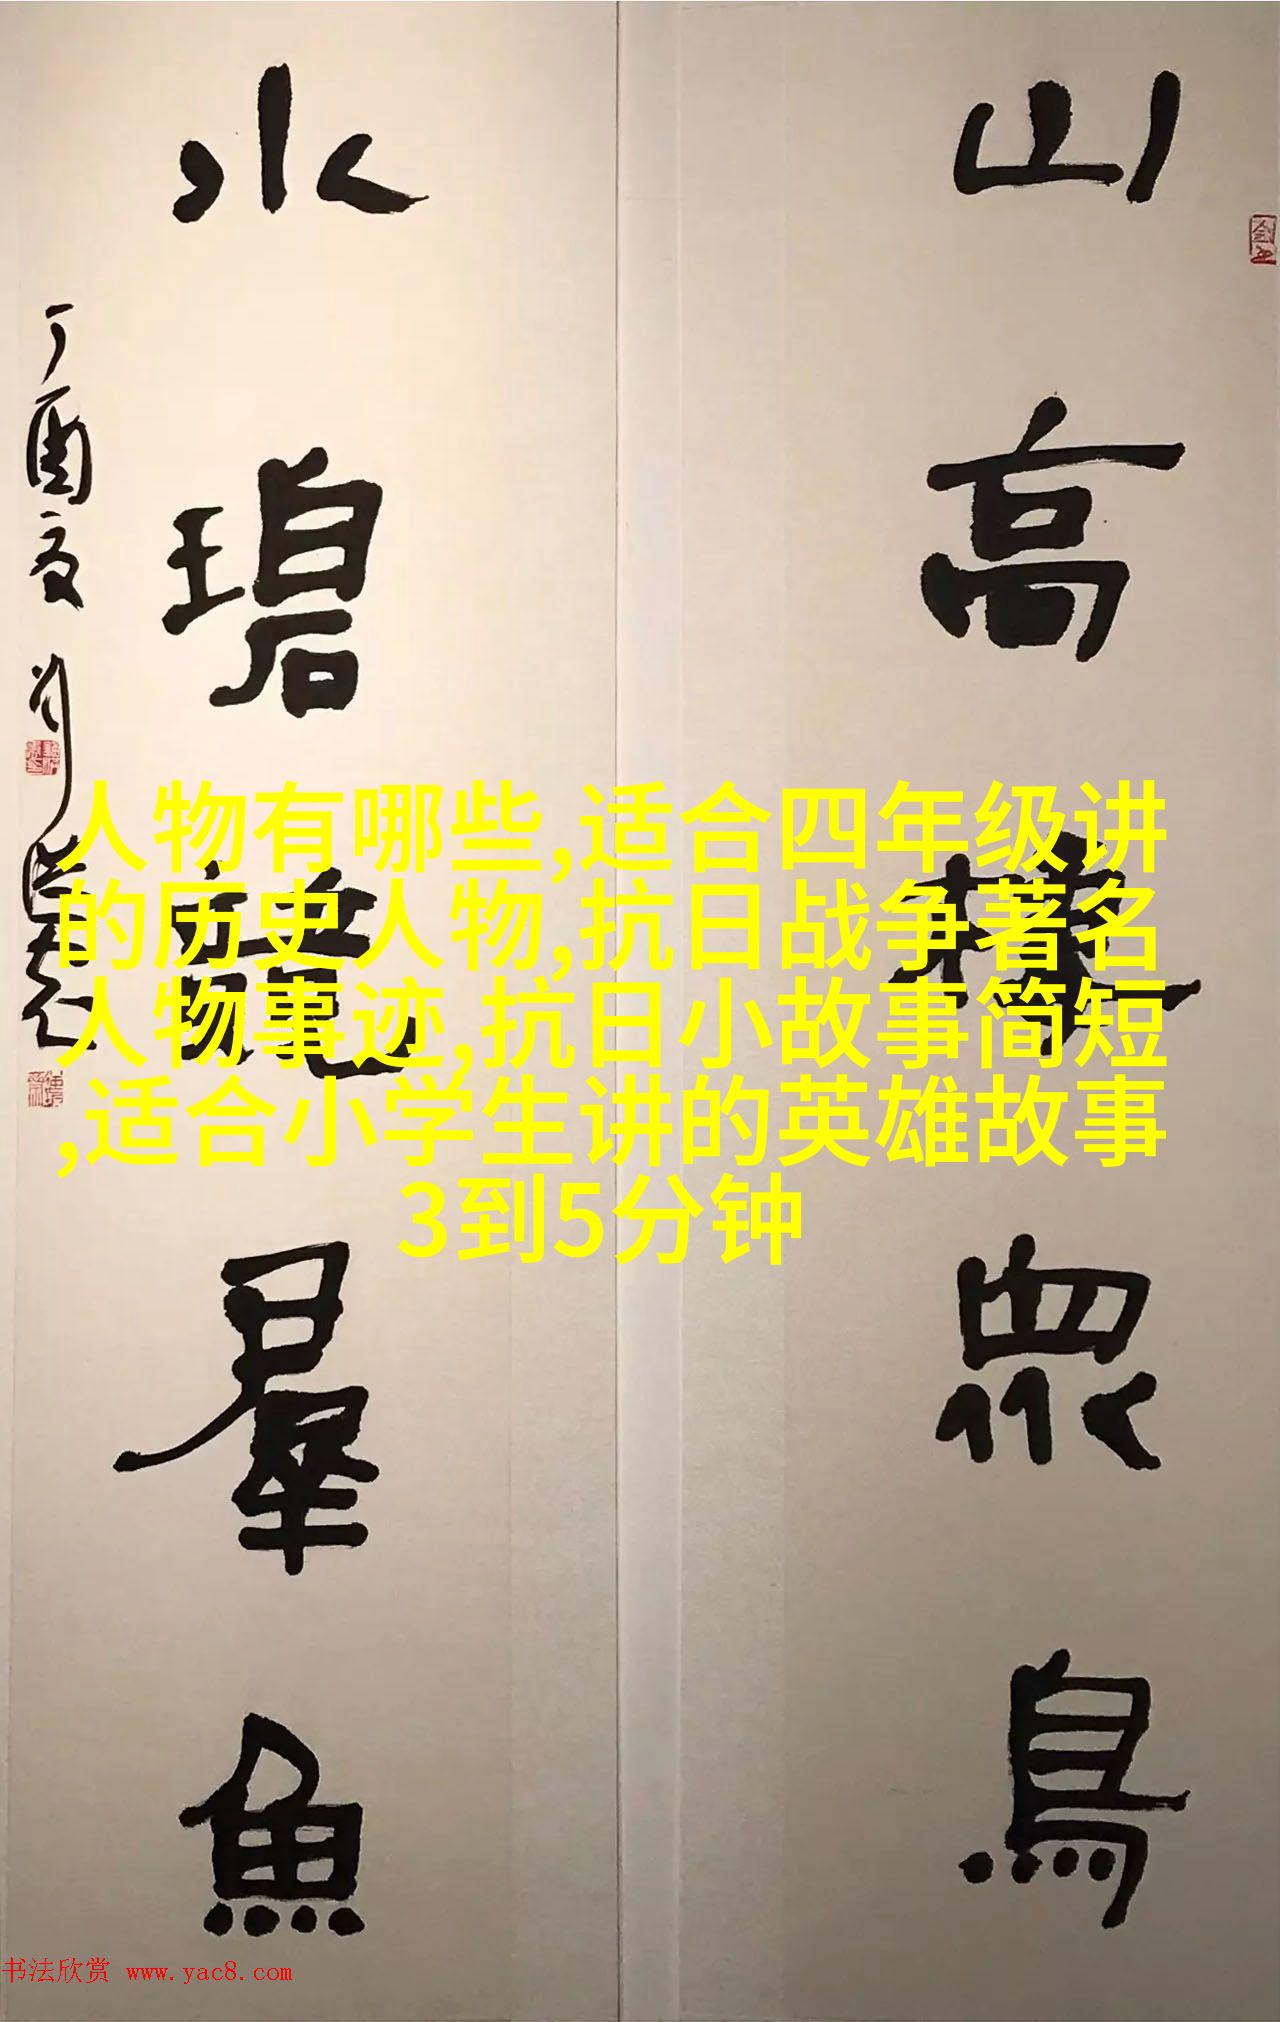 山高眾鳥
水碧羣魚
丁酉夏
人物有哪些,适合四年级讲
的历史人物,抗日战争著名
人物事迹,抗日小故事简短
,适合小学生讲的英雄故事
3到5分钟
书法欣赏 www.yac8.com